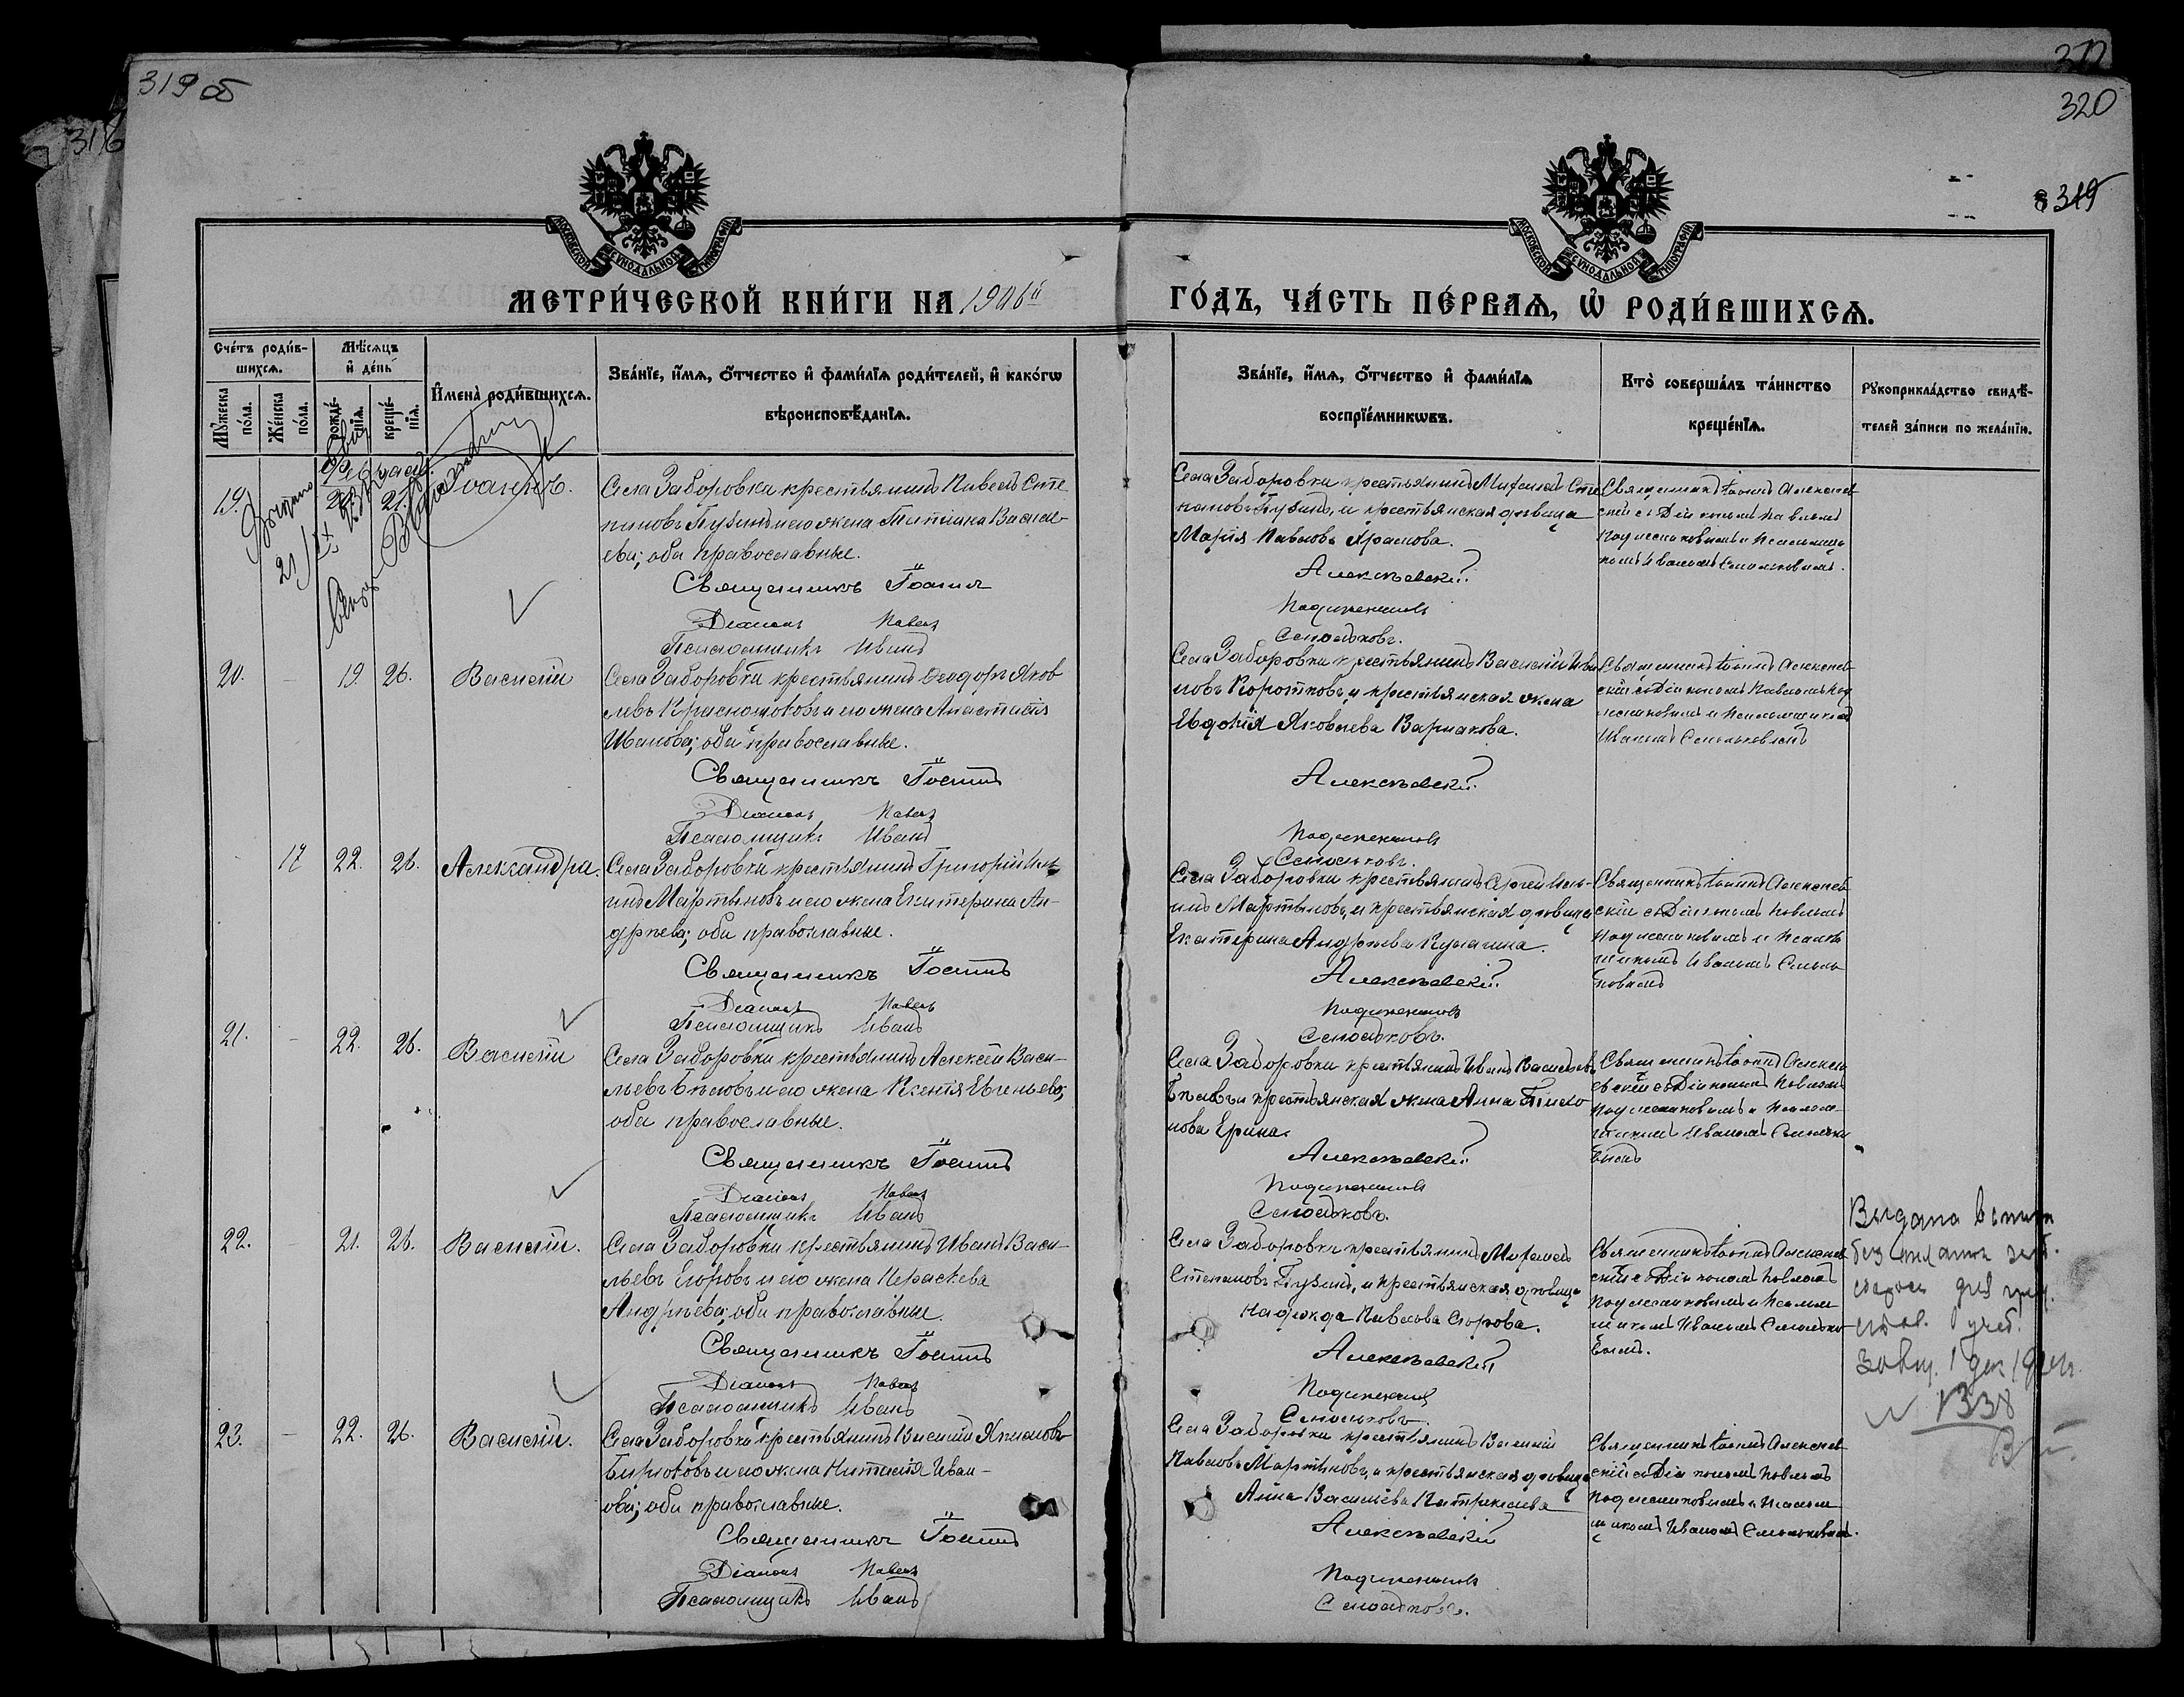 319 об
316
320
319
МОСКОВСКОЙ СѴНОДАЛЬНОЙ ТИПОГРАФІИ
МОСКОВСКОЙ СѴНОДАЛЬНОЙ ТИПОГРАФІИ
МЕТРИ́ЧЕСКОЙ КНИ́ГИ НА 1906й
ГО́ДЪ, ЧА́СТЬ ПЕ́РВАѦ, Ѡ҆ РОДИ́ВШИХСѦ.
Сче́тъ роди́в-
шихсѧ.
Мꙋ́жеска по́ла.
Же́нска по́ла.
Мѣ́сѧцъ
и҆ де́нь
рожде́-
нїѧ.
креще́-
нїѧ.
И҆мена̀ роди́вшихсѧ.
Зва́нїе, и҆́мѧ, ѻ҆́тчество и҆ фами́лїѧ роди́телей, и҆ како́гѡ
вѣроисповѣ́данїѧ.
Зва́нїе, и҆́мѧ, ѻ҆́тчество и҆ фами́лїѧ
воспрїе́мникѡвъ.
Кто̀ соверша́лъ та́инство
креще́нїѧ.
Рꙋкоприкла́дство свидѣ́-
телей за́писи по жела́нїю.
Февраль
19. 21. Іоаннъ.
Села Заборовки крестьянинъ Павелъ Сте
пановъ Пузинъ и его жена Татіана Василь-
ева; оба православные.
Священникъ Іоаннъ
Діаконъ Павелъ
Псаломщикъ Иванъ
Села Заборовки крестьянинъ Михаилъ Сте
пановъ Пузинъ, и крестьянская дѣвица
Марія Павлова Храмова.
Алексѣевскій
Подлесниковъ
Смольковъ.
Священникъ Іоаннъ Алексѣев
скій съ Діакономъ Павломъ
Подлесниковымъ и Псаломщи
комъ Иваномъ Смольковымъ.
20. – 19. 26. Василій
Села Заборовки крестьянинъ Ѳеодоръ Яков
левъ Краснощоковъ и его жена Анастасія
Иванова; оба православные.
Священникъ Іоаннъ
Діаконъ Павелъ
Псаломщикъ Иванъ
Села Заборовки крестьянинъ Василій Ива
новъ Коротковъ и крестьянская жена
Евдокія Яковлева Варлакова.
Алексѣевскій
Подлесниковъ
Смольковъ.
Священникъ Іоаннъ Алексѣев
скій съ Діакономъ Павломъ Под
лесниковымъ и Псаломщикомъ
Иваномъ Смольковымъ
17 22. 26. Александра.
Села Заборовки крестьянинъ Григорій Иль-
инъ Мартыновъ и его жена Екатерина Ан-
дреева; оба православные.
Священникъ Іоаннъ
Діаконъ Павелъ
Псаломщикъ Иванъ
Села Заборовки крестьянинъ Сергей Иль-
инъ Мартыновъ, и крестьянская дѣвица
Екатерина Андреева Кулагина.
Алексѣевскій
Подлесниковъ
Смольковъ.
Священникъ Іоаннъ Алексѣев
скій съ Діакономъ Павломъ
Подлесниковымъ и Псалом
щикомъ Иваномъ Смоль
ковымъ
21. – 22. 26. Василій
Села Заборовки крестьянинъ Алексѣй Васи-
льевъ Бѣловъ и его жена Ксенія Евгеньева;
оба православные.
Священникъ Іоаннъ
Діаконъ Павелъ
Псаломщикъ Иванъ
Села Заборовки крестьянинъ Иванъ Васильевъ
Бѣловъ и крестьянская жена Анна Тихо
нова Ерина.
Алексѣевскій
Подлесниковъ
Смольковъ.
Священникъ Іоаннъ Алексѣ
евскій съ Діакономъ Павломъ
Подлесниковымъ и Псалом-
щикомъ Иваномъ Смолько
вымъ
22. – 21. 26. Василій.
Села Заборовки крестьянинъ Иванъ Васи-
льевъ Егоровъ и его жена Параскева
Андреева; оба православные.
Священникъ Іоаннъ
Діаконъ Павелъ
Псаломщикъ Иванъ
Села Заборовки крестьянинъ Михаилъ
Степановъ Пузинъ, и крестьянская дѣвица
Надежда Павлова Егорова.
Алексѣевскій
Подлесниковъ
Смольковъ.
Священникъ Іоаннъ Алексѣев
скій съ Діакономъ Павломъ
Подлесниковымъ и Псалом
щикомъ Иваномъ Смолько
вымъ.
Выдана
1338
23. – 22. 26. Василій.
Села Заборовки крестьянинъ Василій Якимовъ
Бирюковъ и его жена Наталія Иван-
ова; оба православные.
Священникъ Іоаннъ
Діаконъ Павелъ
Псаломщикъ Иванъ
Села Заборовки крестьянинъ Василій
Павловъ Мартыновъ, и крестьянская дѣвица
Анна Васильева Патрикеева
Алексѣевскій
Подлесниковъ
Смольковъ.
Священникъ Іоаннъ Алексѣев
скій съ Діакономъ Павломъ
Подлесниковымъ и Псалом
щикомъ Иваномъ Смольковымъ.